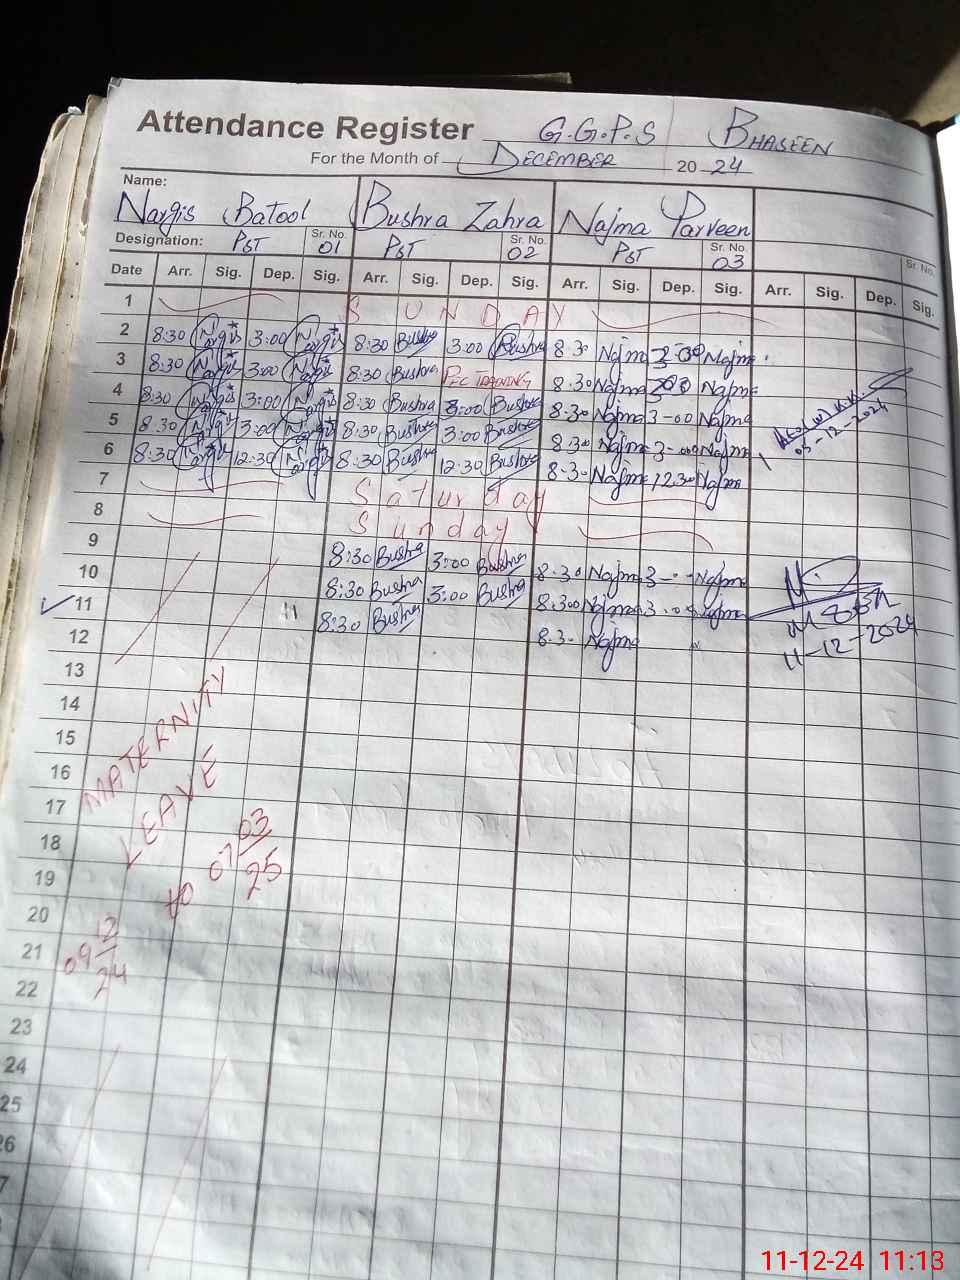 Attendance Register G.G.P.S BHASEEN
For the Month of DECEMBER 2024
Name:
Nargis Batool Bushra Zahra Najma Parveen
Designation: PST Sr. No. 01 PST Sr. No. 02 PST Sr. No. 03 Sr. No.
Date Arr. Sig. Dep. Sig. Arr. Sig. Dep. Sig. Arr. Sig. Dep. Sig. Arr. Sig. Dep. Sig.
1 SUNDAY
2 8:30 Nargis 3:00 Nargis 8:30 Bushra 3:00 Bushra 8:30 Najma Najma
3 8:30 Nargis 3:00 Nargis 8:30 Bushra PEC TRAINING 8:30 Najma Najma
4 8:30 Nargis 3:00 Nargis 8:30 Bushra 3:00 Bushra 8:30 Najma 3-00 Najma
5 8:30 Nargis 3:00 Nargis 8:30 Bushra 3:00 Bushra 8:30 Najma 3-00 Najma
05-12-2024
6 8:30 Nargis 12:30 Nargis 8:30 Bushra 12:30 Bushra 8:30 Najma 12:30 Najma
7 Saturday
8 Sunday
9 8:30 Bushra 3:00 Bushra 8:30 Najma 3-00 Najma
10 8:30 Bushra 3:00 Bushra 8:300 Najma 3-00 Najma
11 8:30 Bushra 8:30 Najma
11-12-2024
12
13
14
15
16
17
18
19
20
21
22
23
24
25
26
7
MATERNITY
LEAVE
09 12/24 to 07 03/25
11-12-24 11:13